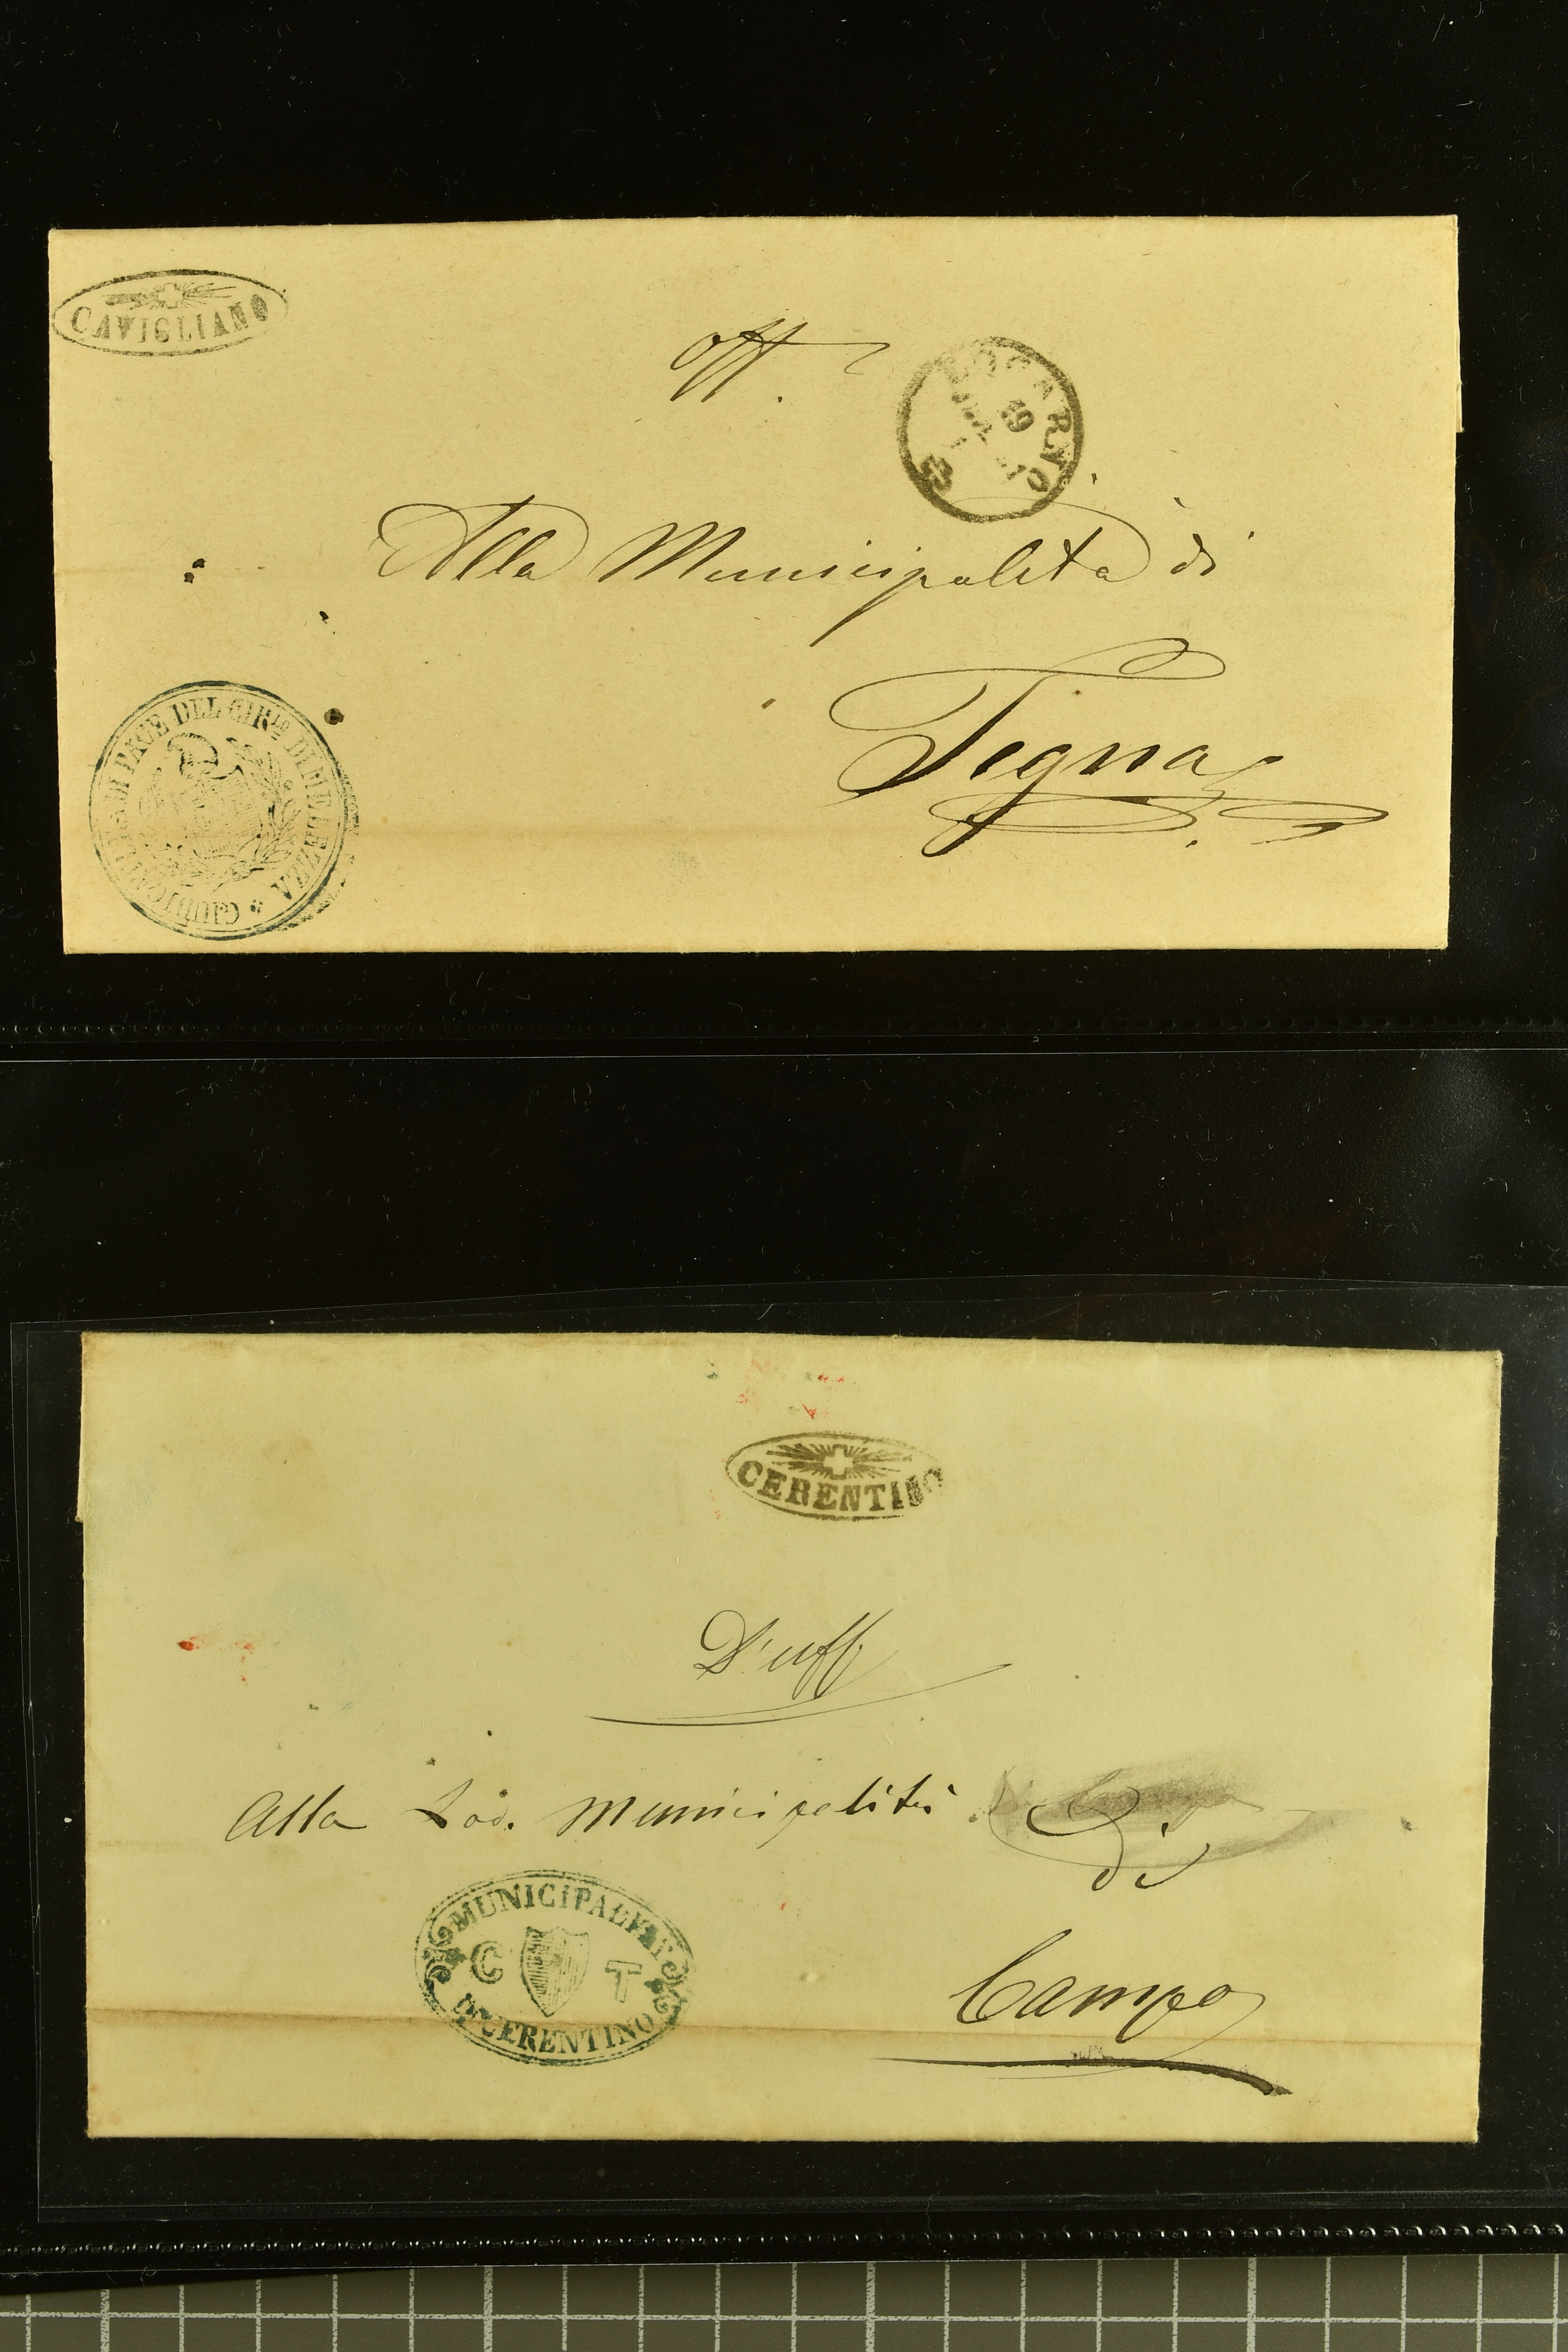 CAVIGLIANO
Off.
LOCARNO
19
Alla Municipalità di
Tegna
GIUDICATURA DI PACE DEL CIRLO DI MELEZZA
CERENTINO
D'uff
Alla Lod. Municipalità
di
MUNICIPALITÀ
C T
DI CERENTINO
Campo